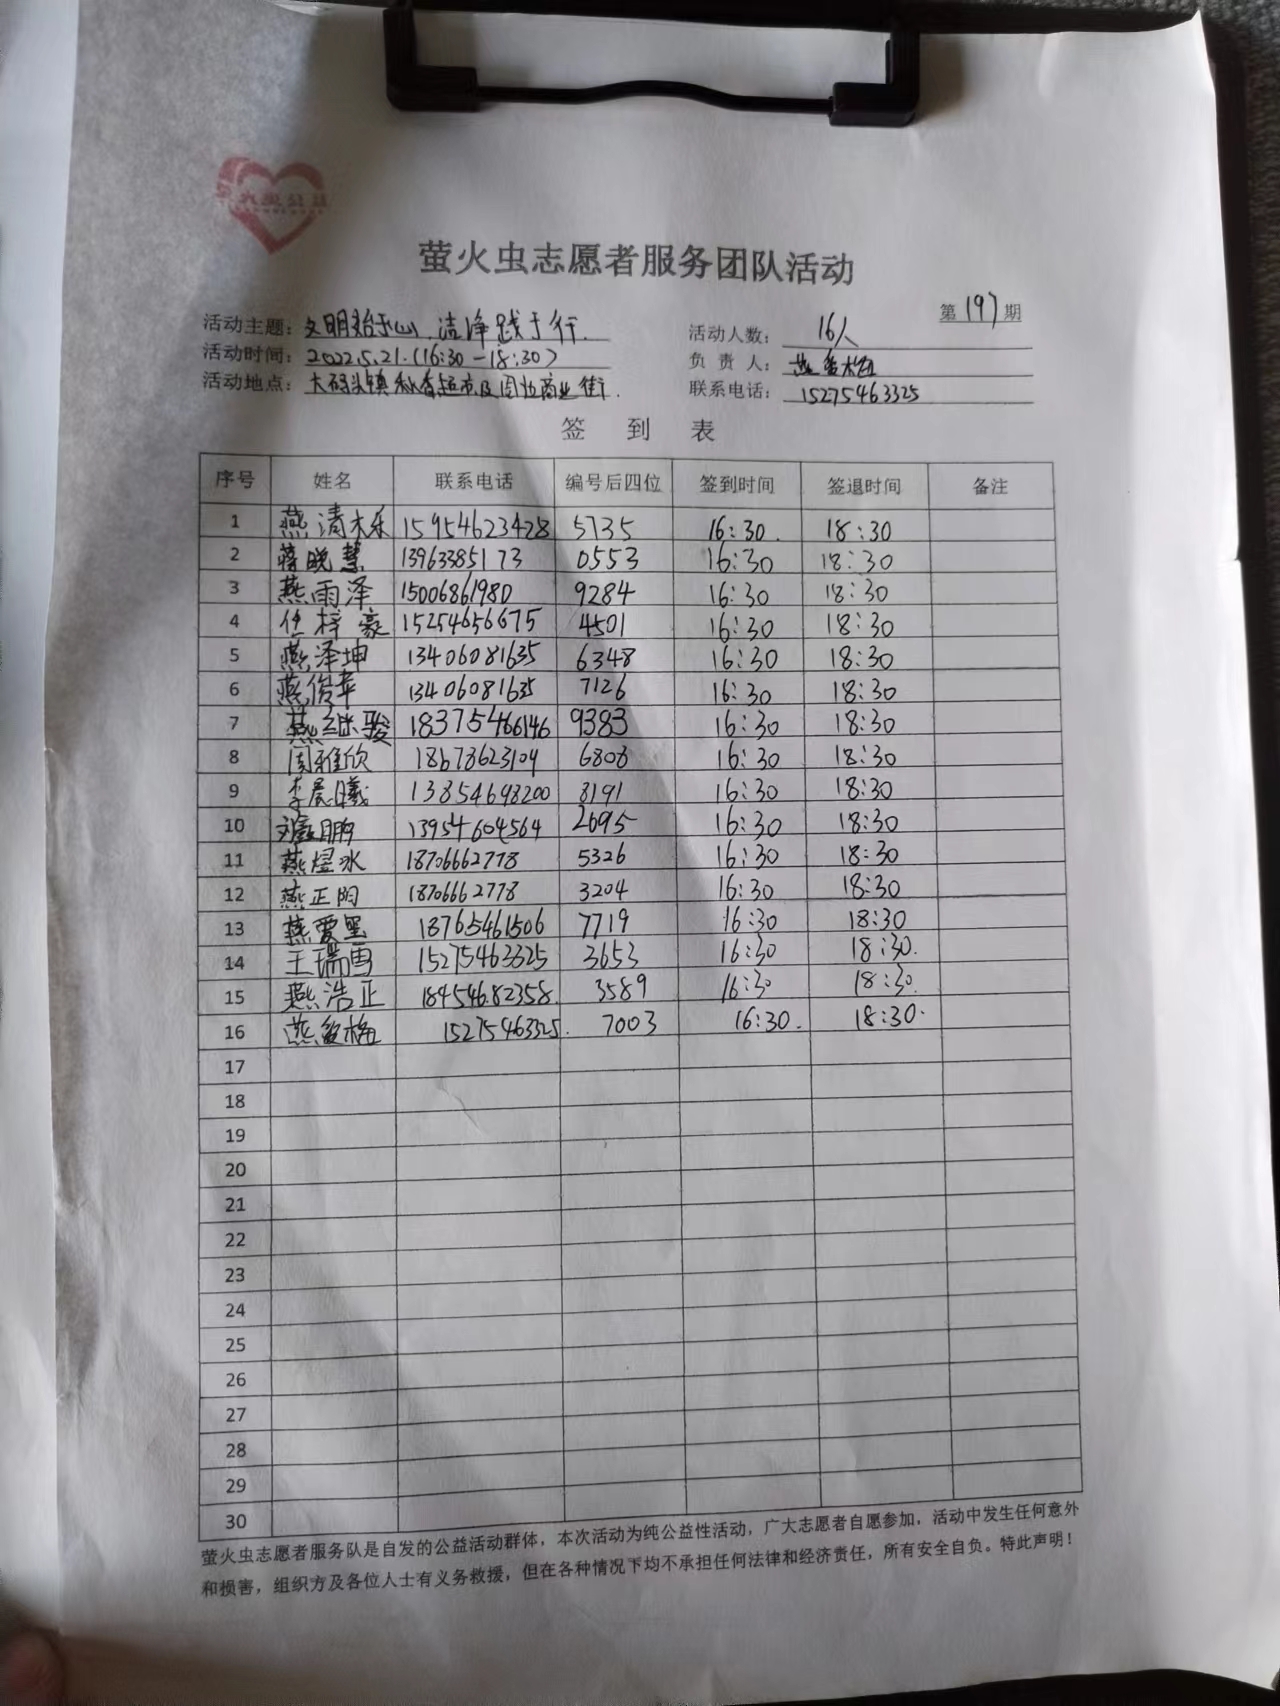 萤火虫志愿者服务团队活动
第197期
活动主题：文明始于心，洁净践于行.
活动人数：16人
活动时间：2022.5.21.(16:30-18:30)
负责人：燕敏梅
活动地点：大码头镇秋香超市及周边商业街.
联系电话：15275463325
签到表
序号 姓名 联系电话 编号后四位 签到时间 签退时间 备注
1 燕清 15954623428 5735 16:30. 18:30
2 蒋晓慧 13963385173 0553 16:30 18:30
3 燕雨泽 15006861980 9284 16:30 18:30
4 任梓豪 15254656675 4501 16:30 18:30
5 燕泽坤 13406081635 6348 16:30 18:30
6 燕俊苹 13406081635 7126 16:30 18:30
7 燕继骏 18375466146 9383 16:30 18:30
8 周雅欣 18678623109 6808 16:30 18:30
9 李晨曦 13854698200 8191 16:30 18:30
10 13954604564 2695 16:30 18:30
11 燕煜冰 18706662778 5326 16:30 18:30
12 燕正阳 18706662778 3204 16:30 18:30
13 燕爱 18765461506 7719 16:30 18:30
14 王瑞雪 15275463325 3653 16:30 18:30.
15 燕浩正 18454682358 3589 16:30 18:30.
16 燕敏梅 15275463325. 7003 16:30. 18:30.
17
18
19
20
21
22
23
24
25
26
27
28
29
30
萤火虫志愿者服务队是自发的公益活动群体，本次活动为纯公益性活动，广大志愿者自愿参加，活动中发生任何意外
和损害，组织方及各位人士有义务救援，但在各种情况下均不承担任何法律和经济责任，所有安全自负。特此声明！